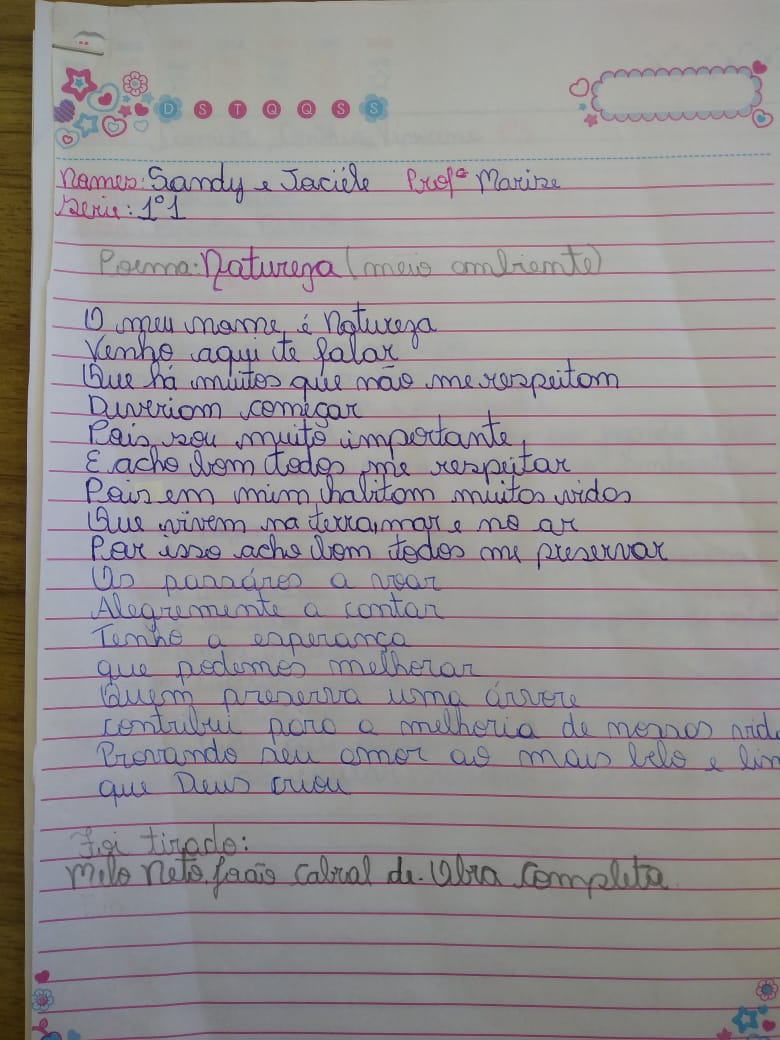 D S T Q Q S S
Nomes: Sandy e Jaciéle Profª Marize
Serie: 1º1
Poema: Natureza (meio ambiente)
O meu nome é Natureza
Venho aqui te falar
Que há muitos que não me respeitam
Deveriam começar
Pois sou muito importante,
E acho bom todos me respeitar
Pois em mim habitam muitas vidas
Que vivem na terra, mar e no ar
Por isso acho bom todos me preservar
Os passáros a voar
Alegremente a cantar
Tenho a esperança
que podemos melhorar
Quem preserva uma árvore
contribui para a melhoria de nossas vid
Provando seu amor ao mais belo e lin
que Deus criou
Foi tirado:
Melo Neto, João Cabral de. Obra completa.